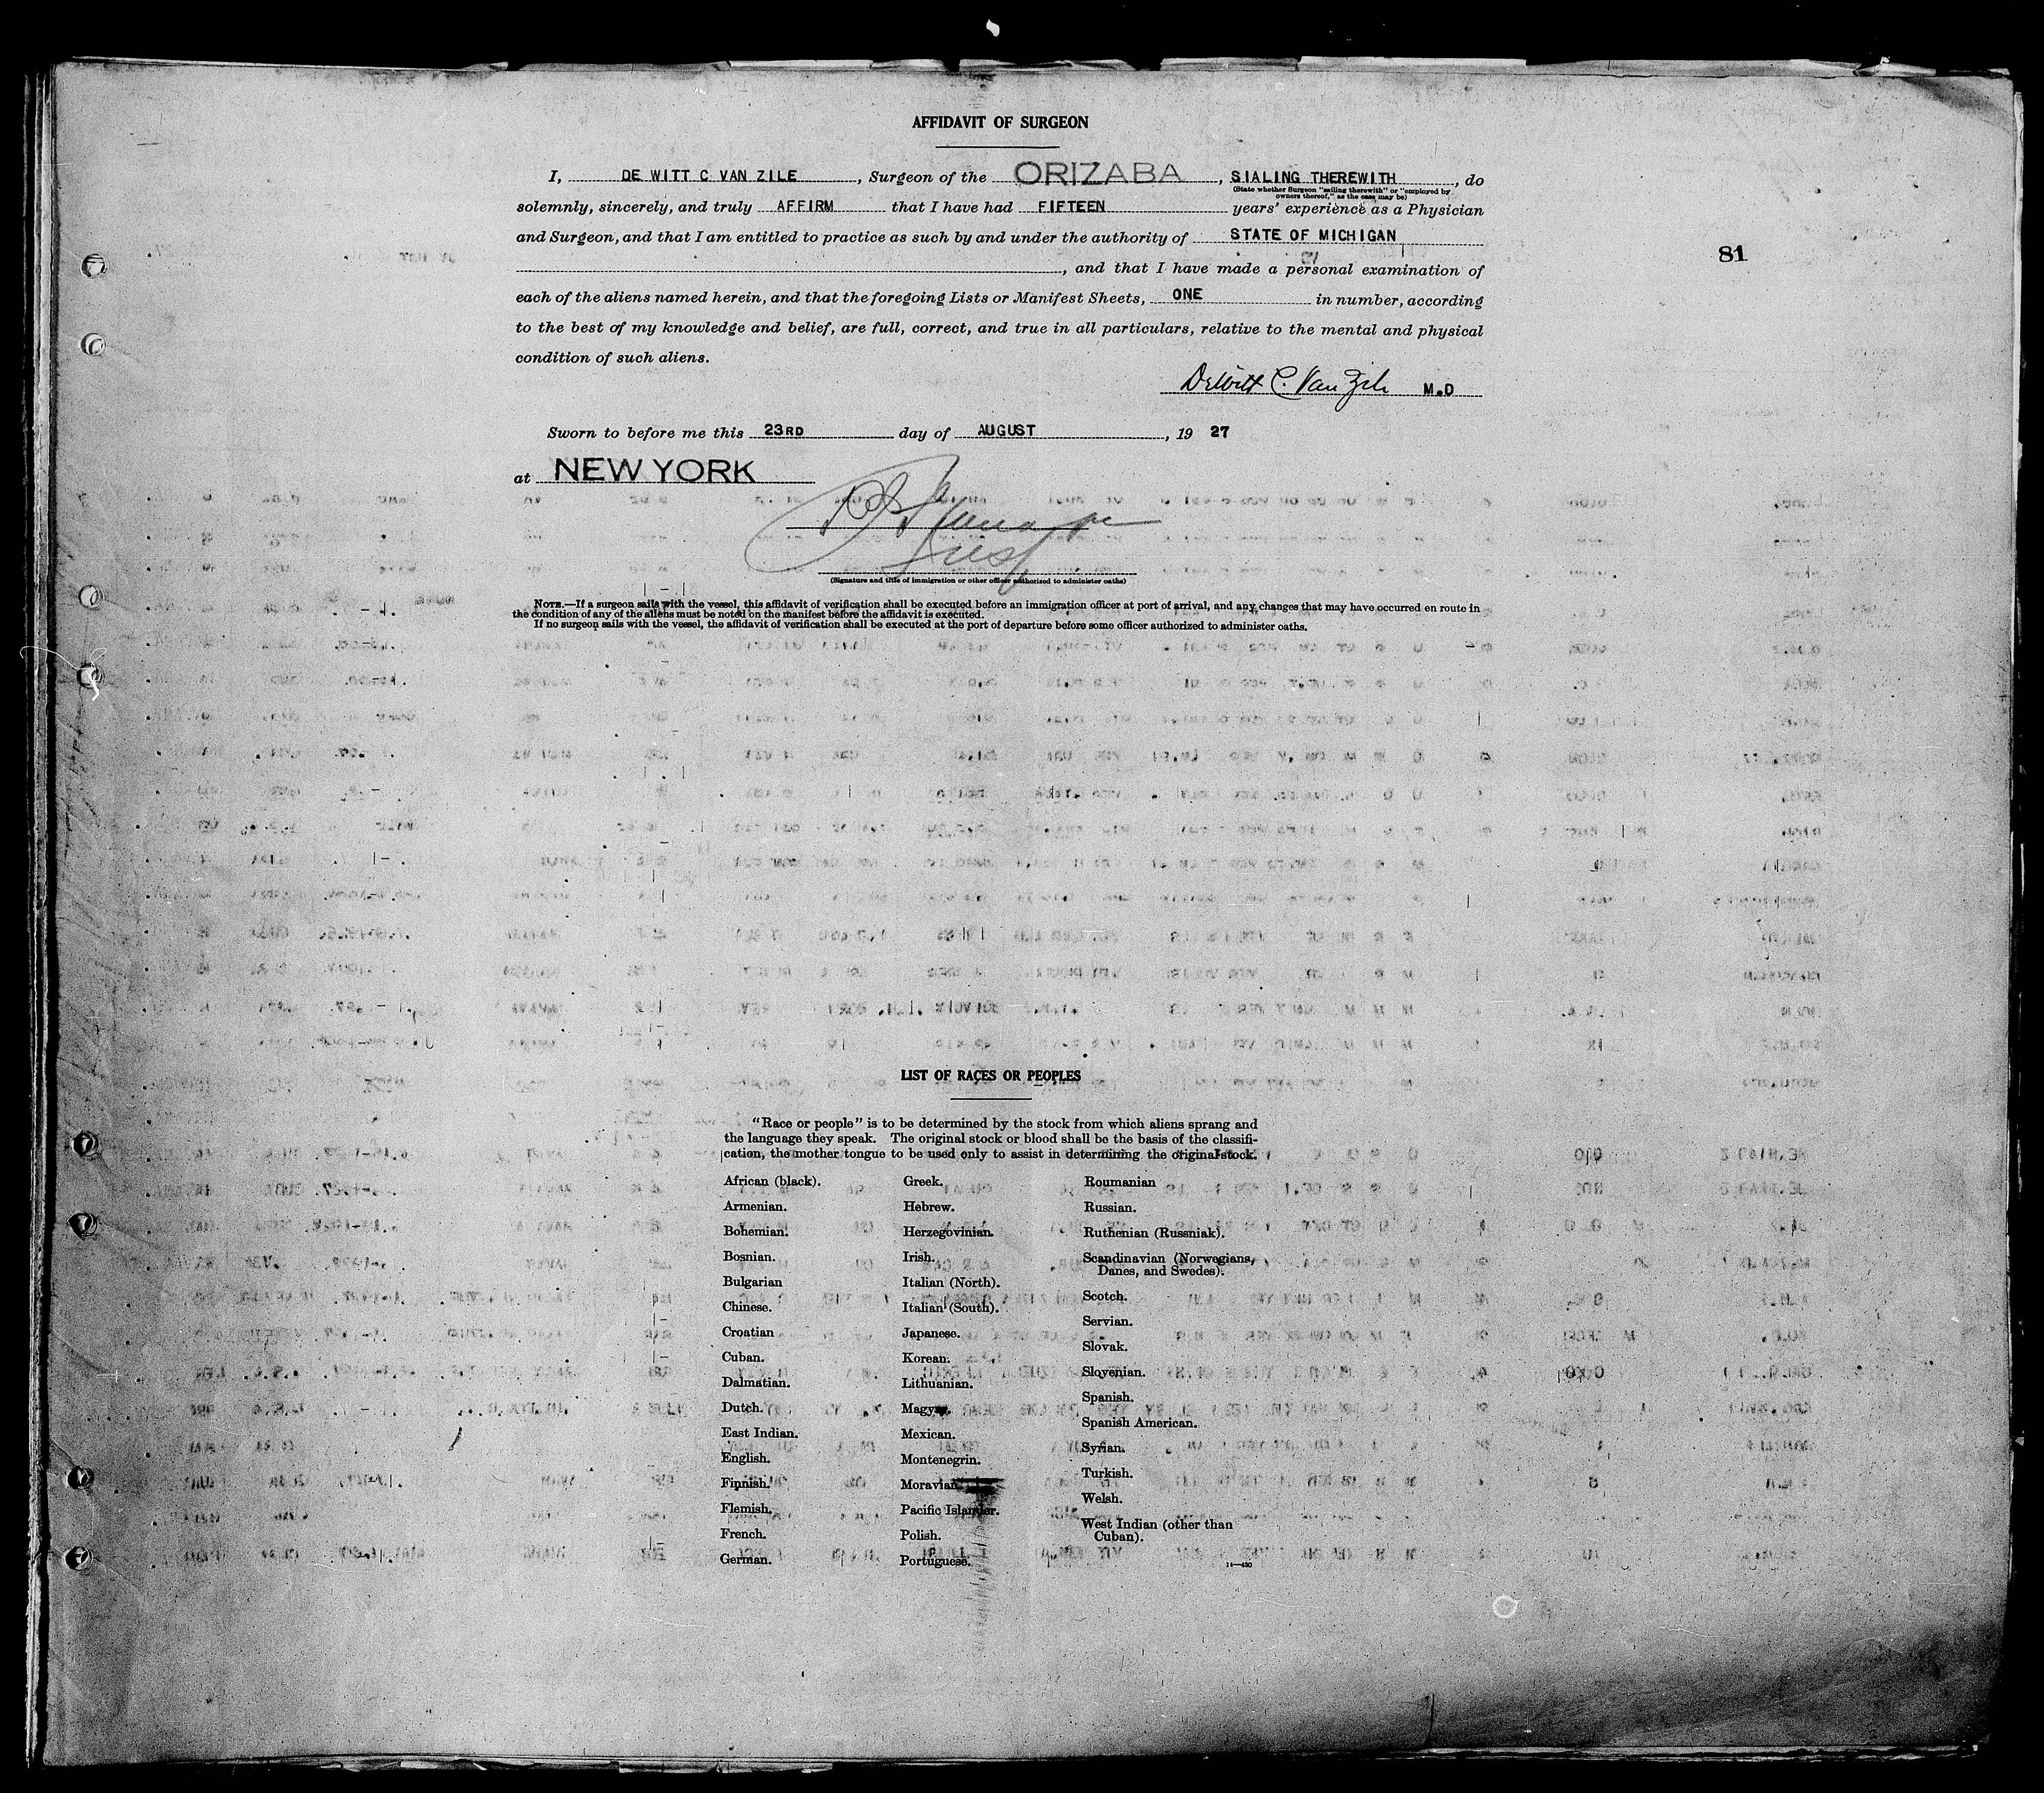 AFFIDAVIT OF SURGEON
I, DE WITT C VAN ZILE, Surgeon of the ORIZABA, SIALING THEREWITH, do
(State whether Surgeon "sailing therewith" or "employed by
owners thereof," as the case may be)
solemnly, sincerely, and truly AFFIRM that I have had FIFTEEN years' experience as a Physician
and Surgeon, and that I am entitled to practice as such by and under the authority of STATE OF MICHIGAN
81
, and that I have made a personal examination of
each of the aliens named herein, and that the foregoing Lists or Manifest Sheets, ONE in number, according
to the best of my knowledge and belief, are full, correct, and true in all particulars, relative to the mental and physical
condition of such aliens.
DeWitt C. Van Zile M.D
Sworn to before me this 23RD day of AUGUST, 19 27
at NEW YORK
(Signature and title of immigration or other officer authorized to administer oaths)
NOTE.—If a surgeon sails with the vessel, this affidavit of verification shall be executed before an immigration officer at port of arrival, and any changes that may have occurred en route in
the condition of any of the aliens must be noted on the manifest before the affidavit is executed.
If no surgeon sails with the vessel, the affidavit of verification shall be executed at the port of departure before some officer authorized to administer oaths.
LIST OF RACES OR PEOPLES
"Race or people" is to be determined by the stock from which aliens sprang and
the language they speak. The original stock or blood shall be the basis of the classifi-
cation, the mother tongue to be used only to assist in determining the original stock.
African (black).
Armenian.
Bohemian.
Bosnian.
Bulgarian
Chinese.
Croatian
Cuban.
Dalmatian.
Dutch.
East Indian.
English.
Finnish.
Flemish.
French.
German.
Greek.
Hebrew.
Herzegovinian.
Irish.
Italian (North).
Italian (South).
Japanese.
Korean.
Lithuanian.
Magyar.
Mexican.
Montenegrin.
Moravian
Pacific Islander.
Polish.
Portuguese.
Roumanian
Russian.
Ruthenian (Russniak).
Scandinavian (Norwegians,
Danes, and Swedes).
Scotch.
Servian.
Slovak.
Slovenian.
Spanish.
Spanish American.
Syrian.
Turkish.
Welsh.
West Indian (other than
Cuban).
14—430